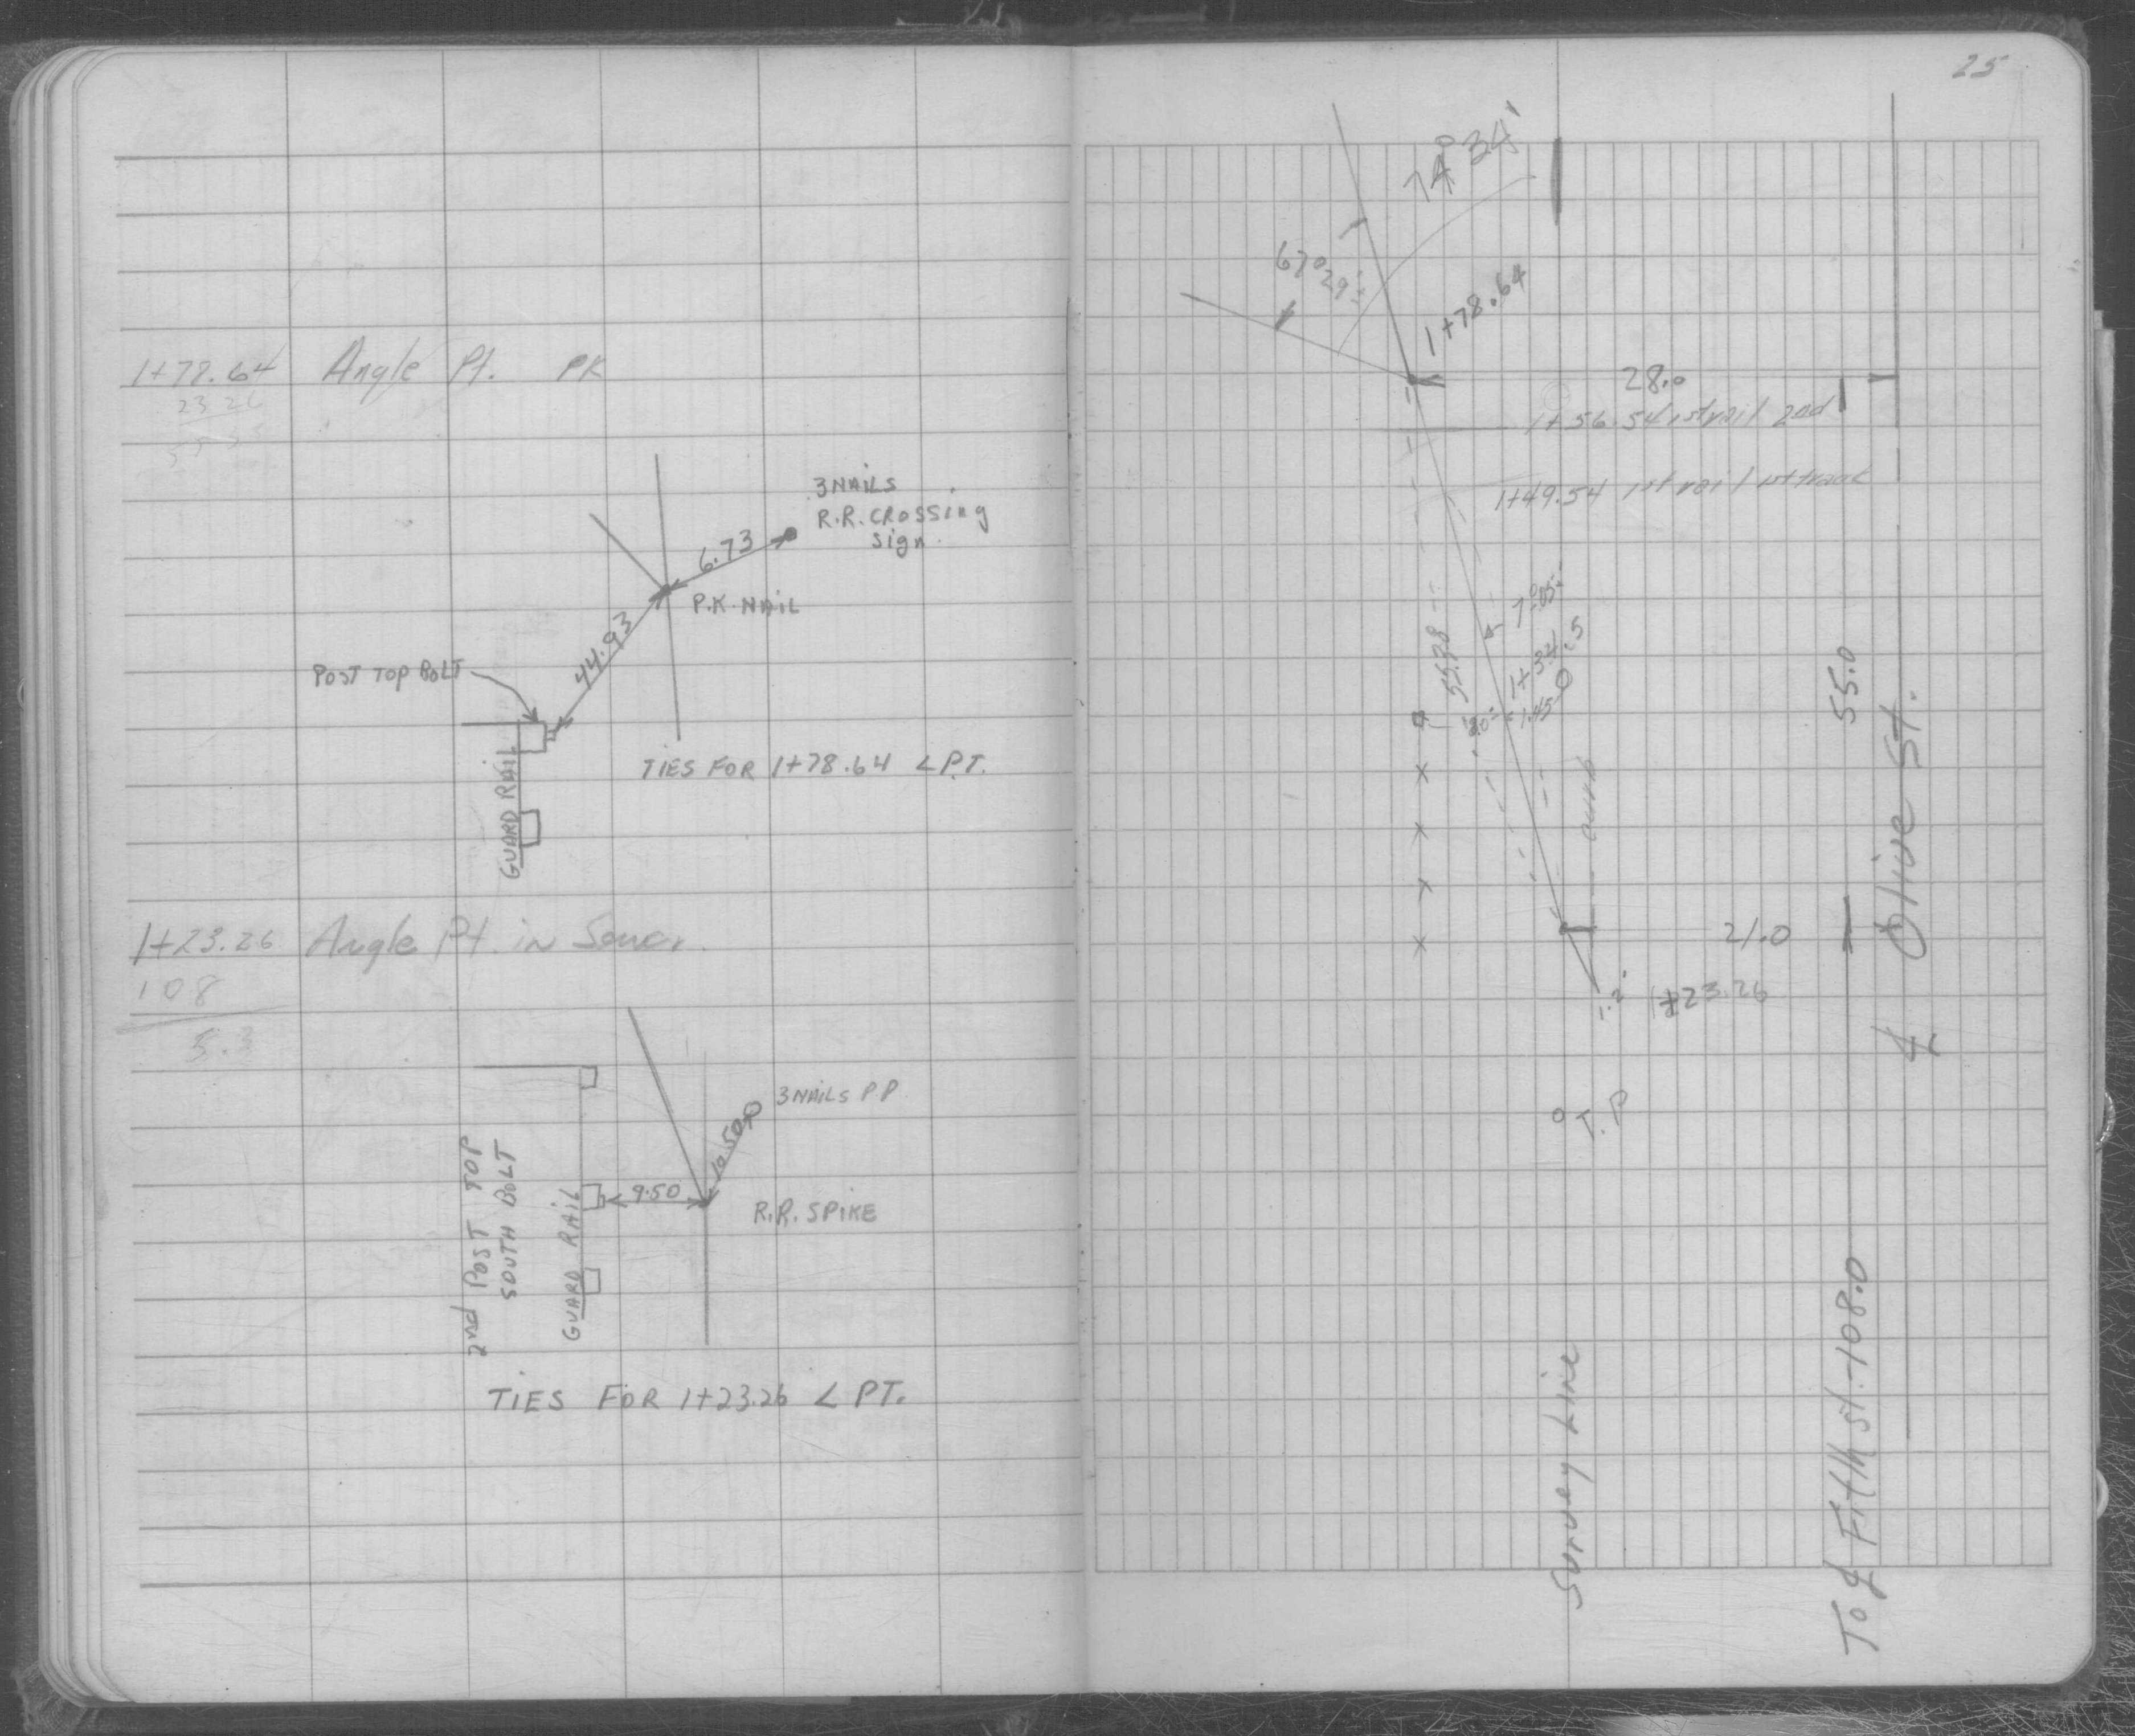 25
1+78.64 Angle Pt. PK
23 26
3 NAILS
R.R. CROSSING
Sign.
6.73
P.K. NAIL
44.93
POST TOP BOLT
GUARD RAIL
TIES FOR 1+78.64 ∠ P.T.
1+23.26 Angle Pt. in Sewer.
108
3 NAILS P P
10.50
9.50
R.R. SPIKE
2nd POST TOP
SOUTH BOLT
GUARD RAIL
TIES FOR 1+23.26 ∠ PT.
74° 34'
67° 29'±
1+78.64
28.0
1+56.54 1st rail 2nd
1+49.54 1st rail 1st track
7° 05'
55.38
1+34.5
1.45
curb
55.0
℄ Olive St.
21.0
1.2
1+23.26
T.P
Survey Line
To ℄ Fifth St. - 108.0